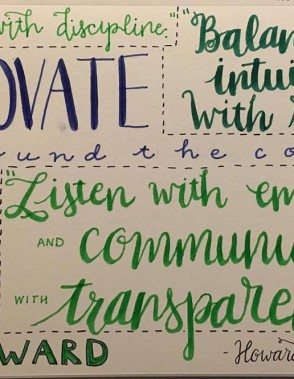 with discipline."
"Balan
intui
with
OVATE
und the co
"Listen with em
AND commun
WITH transpare
WARD
- Howard